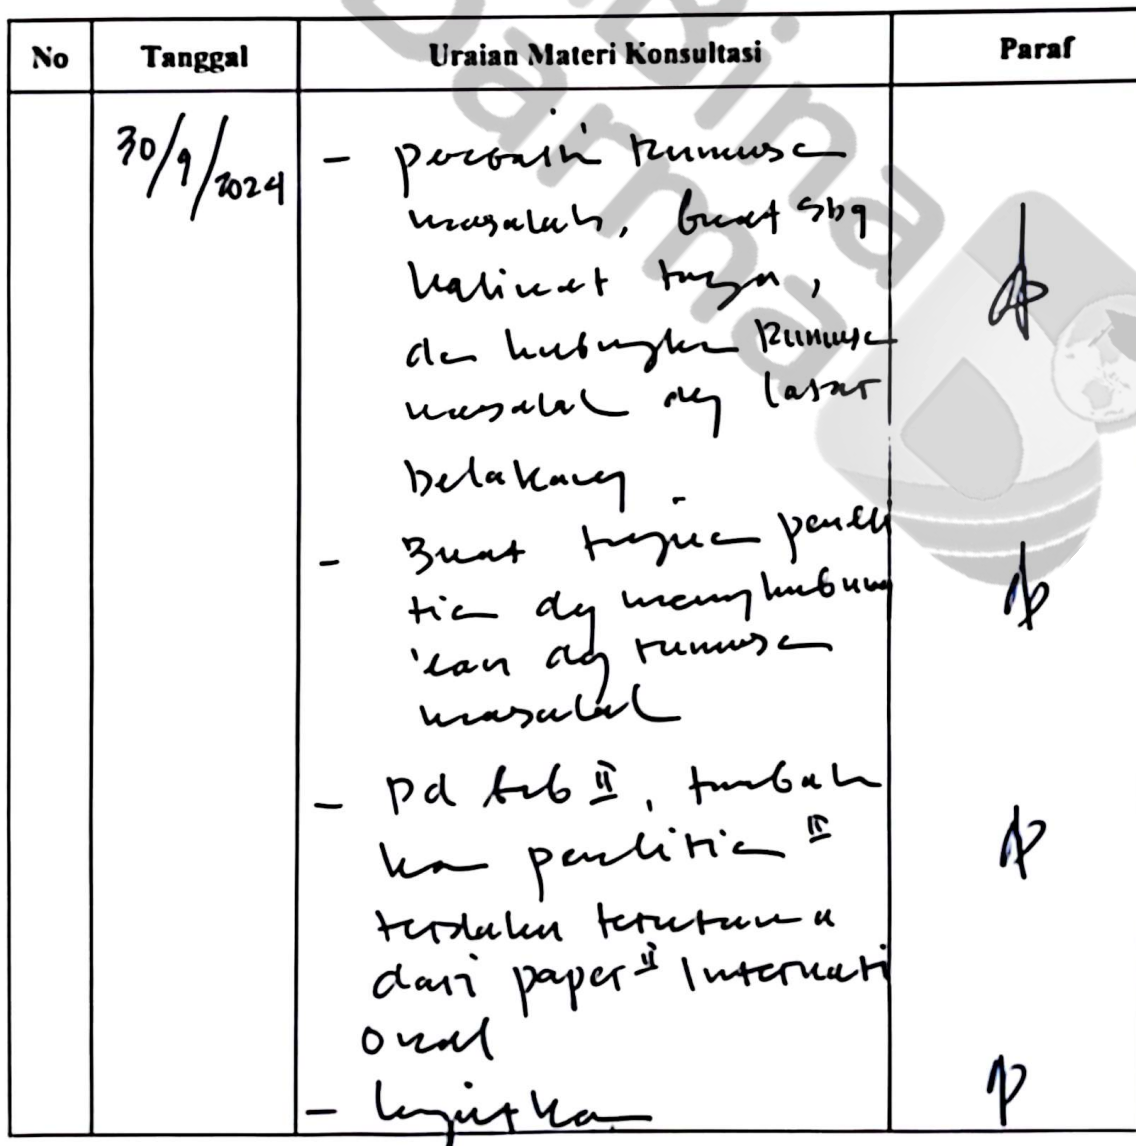 Bina
Darma
No Tanggal Uraian Materi Konsultasi Paraf
30/9/2024 - perbaiki rumusan
masalah, buat sbg
kalimat tanya,
dan hubungkan Rumusan
masalah dg latar
belakang
- Buat tujuan peneli
tian dg menghubung
kan dg rumusan
masalah
- Pd bab II, tambah
kan penelitian II
terdahulu terutama
dari paper II Internati
onal
- lanjutkan